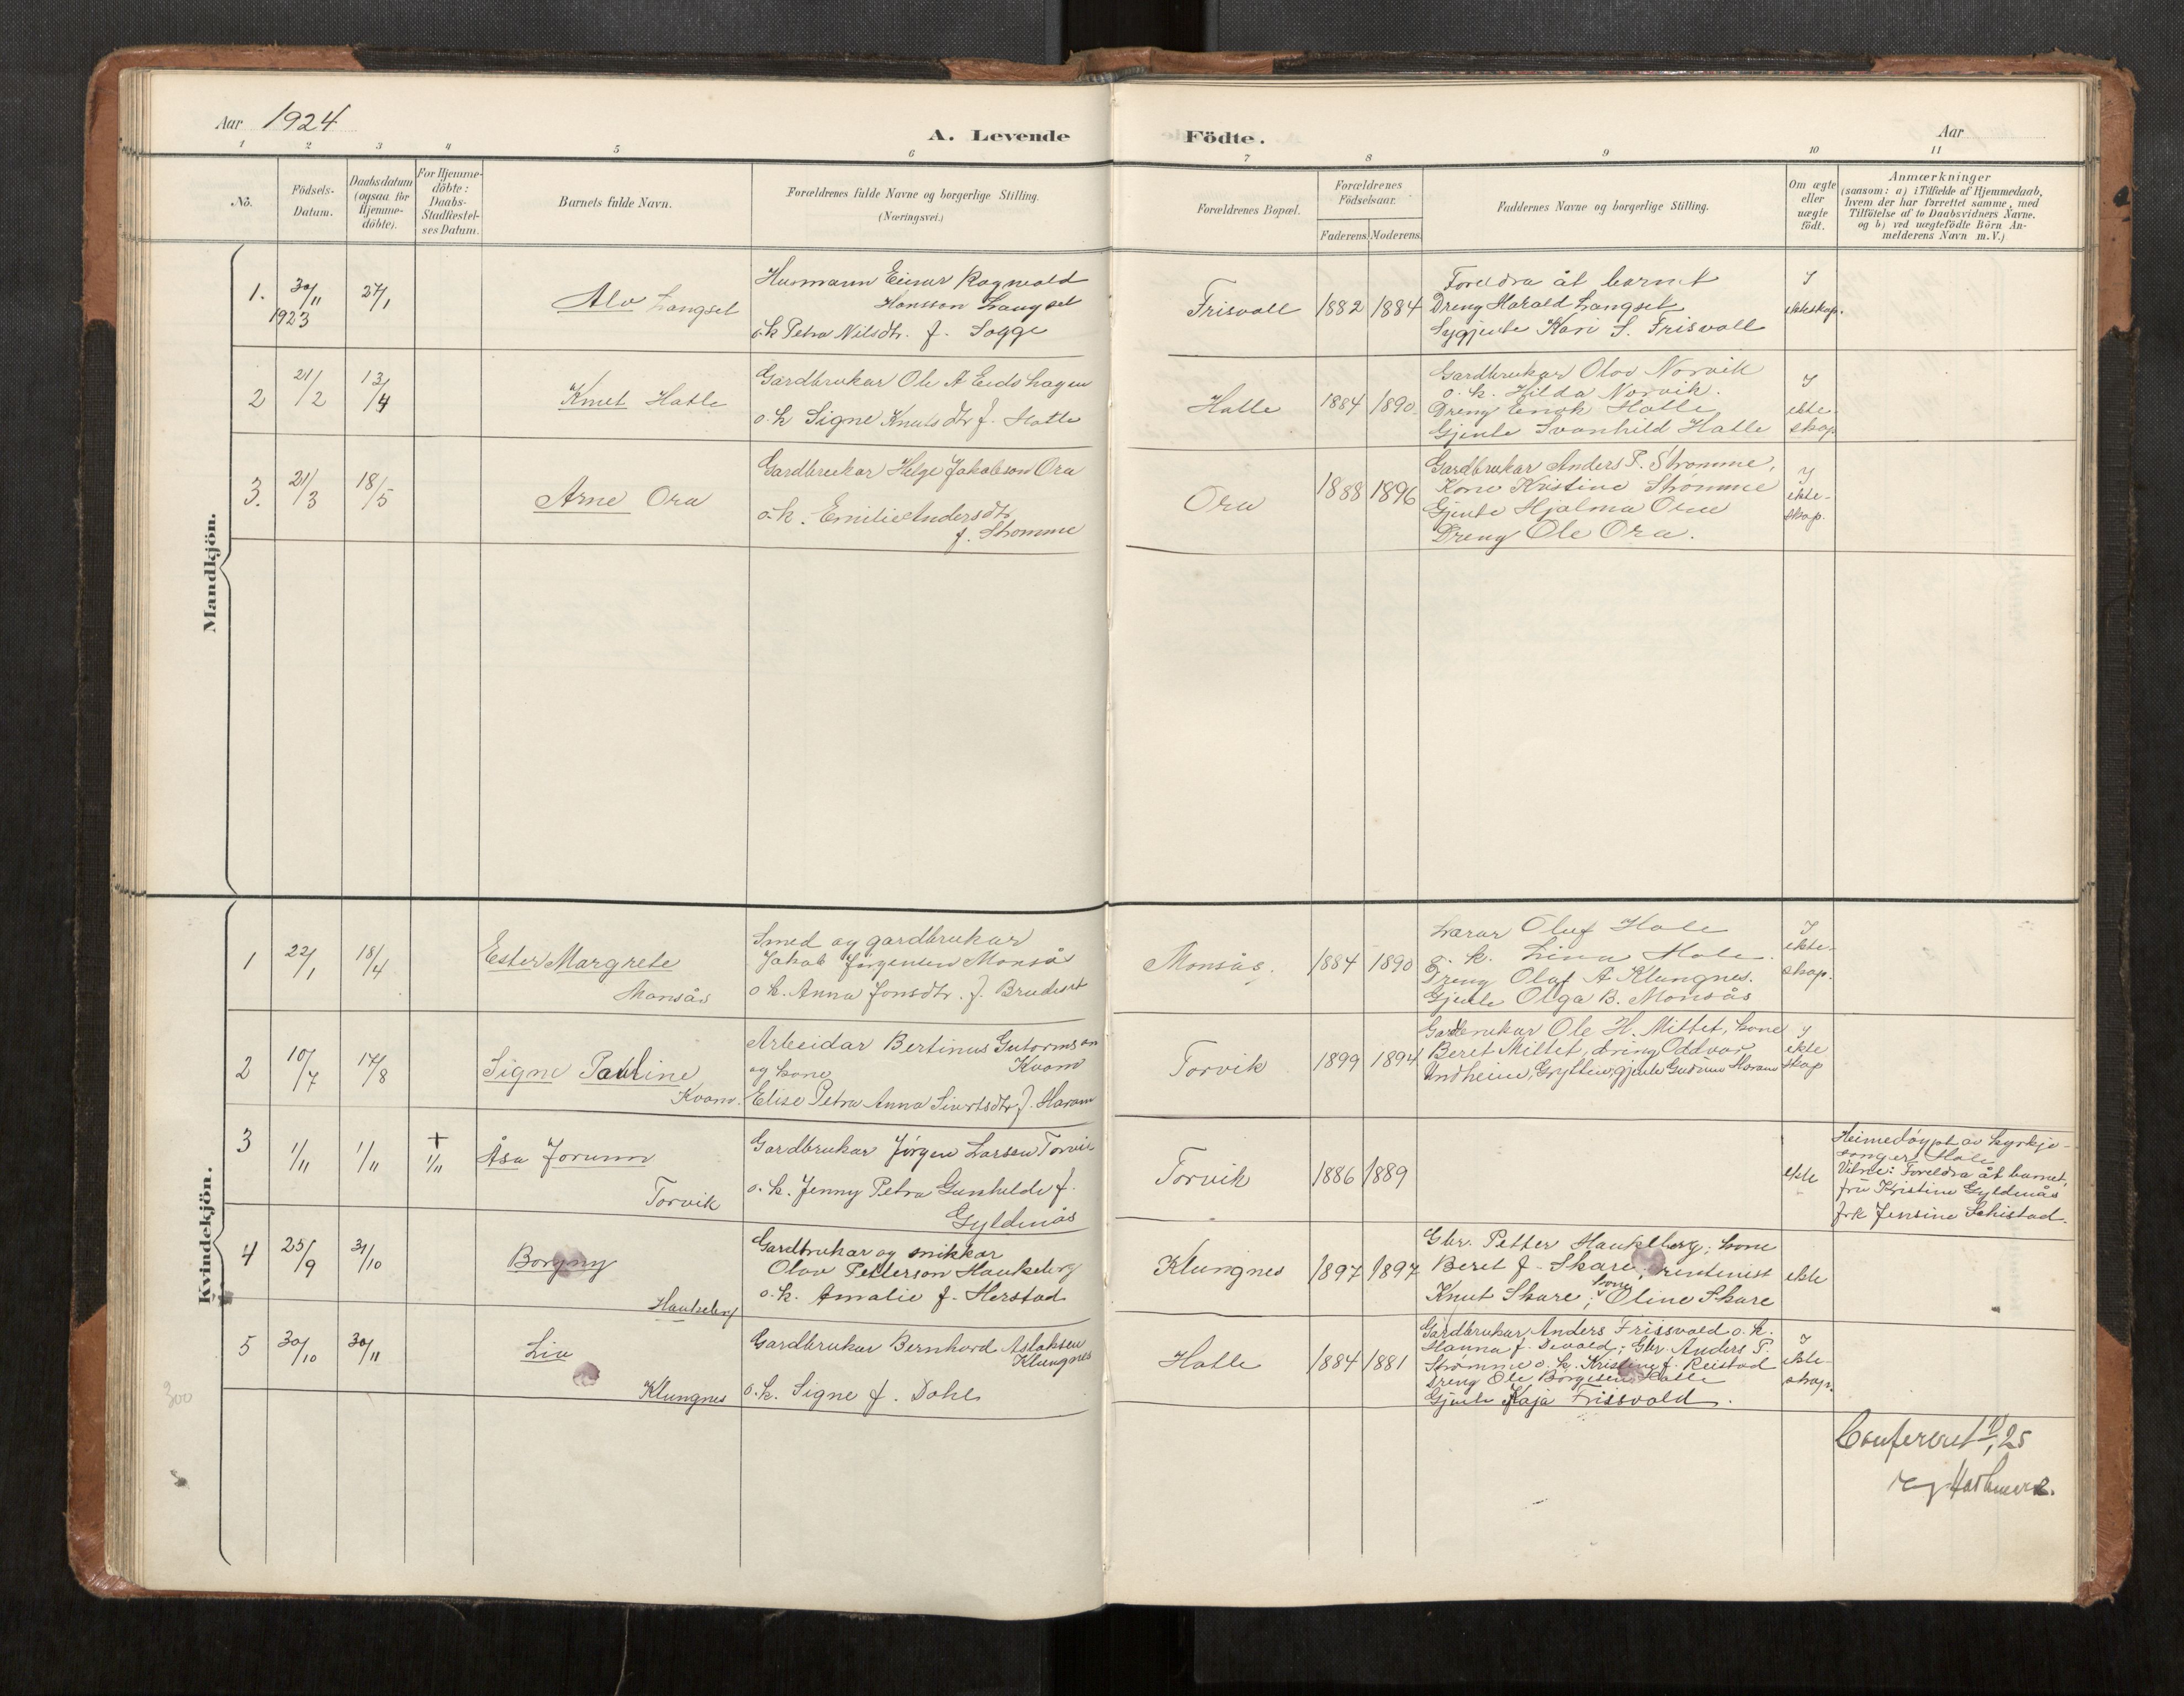 Aar 1924
A. Levende
Födte.
Aar
1 2 3 4 5 6 7 8 9 10 11
No.
Födsels-
Datum.
Daabsdatum
(ogsaa for
Hjemme-
döbte).
For Hjemme-
döbte:
Daabs-
Stadfæstel-
ses Datum.
Barnets fulde Navn.
Forældrenes fulde Navne og borgerlige Stilling.
(Næringsvei.)
Forældrenes Bopæl.
Forældrenes
Fødselsaar.
Faderens. Moderens.
Faddernes Navne og borgerlige Stilling.
Om ægte
eller
uægte
født.
Anmærkninger
(saasom: a) i Tilfælde af Hjemmedaab,
hvem der har forrettet samme, med
Tilføielse af to Daabsvidners Navne.
og b) ved uægtefödte Börn An-
melderens Navn m. V.)
Mandkjön.
1. 30/11 1923 27/1
Alv Langset
Husmann Einar Ragnvald
Hansson Langset
o.k Petra Nilsdtr. f. Sogge
Frisvoll 1882 1884
Foreldra åt barnet
Dreng Harald Langset
Sygjente Kari S. Frisvoll
I
ekteskap.
2 21/2 13/4
Knut Hatle
Gardbrukar Ole A Eidshagen
o.k Signe Knutsdtr f. Hatle
Hatle 1884 1890
Gardbrukar Olav Norvik
o. k. Hilda Norvik.
Dreng Enok Hatle
Gjente Svanhild Hatle
I
ekte
skap
3. 21/3 18/5
Arne Ora
Gardbrukar Helge Jakobson Ora
o.k. Emilie Andersdtr
f. Strømme
Ora 1888 1896
Gardbrukar Anders P. Strømme,
Kone Kristine Strømme
Gjente Hjalma Ora
Dreng Ole Ora.
I
ekte-
skap.
Kvindekjön.
1 22/1 18/4
Ester Margrete
Monsås
Smed og gardbrukar
Jakob Jørgensen Monsås
o k. Anna Jonsdtr. f. Brudeset
Monsås. 1884 1890
Lærar Oluf Hole
o. k. Lina Hole.
Dreng Olaf A. Klungnes.
Gjente Olga B. Monsås
I
ekte-
skap.
2 10/7 17/8
Signe Pauline
Kvam.
Arbeidar Bertinus Gutormson
og kone Kvam
Elise Petra Anna Sivertsdtr f. Haram
Torvik 1899 1894
Gardbrukar Ole H. Mittet, kone
Beret Mittet, dreng Oddvar
Undheim, Grytten, gjente Gudrun Haram
I
ekte
skap
3 1/11 1/11 + 1/11
Åsa Jorunn
Torvik
Gardbrukar Jörgen Larsen Torvik
o. k. Jenny Petra Gunhilde f.
Gyldenås
Torvik 1886 1889
ekte
Heimedöypt av kyrkje-
songer Hole
Vitne: Foreldra åt barnet,
fru Kristine Gyldenås
frk Jensine Schistad.
4 25/9 31/10
Borgny
Haukeberg
Gardbrukar og snikkar
Olav Petterson Haukeberg
o. k. Amalie f. Herstad
Klungnes 1897 1897
Gbr. Petter Haukeberg; kone
Beret f. Skare; rentenist
Knut Skare; kone Oline Skare
ekte
5 30/10 30/11
Liv
Klungnes
Gardbrukar Bernhard Aslaksen
Klungnes
o. k. Signe f. Dahl
Hatle 1884 1881
Gardbrukar Anders Frisvold o. k.
Hanna f. Devold; Gbr. Anders P.
Strømme o. k. Kristine f. Reistad
Dreng Ole Børgesen Hatle
Gjente Kaja Frisvold.
I
ekte-
skap.
300
Confereret 1/1 25